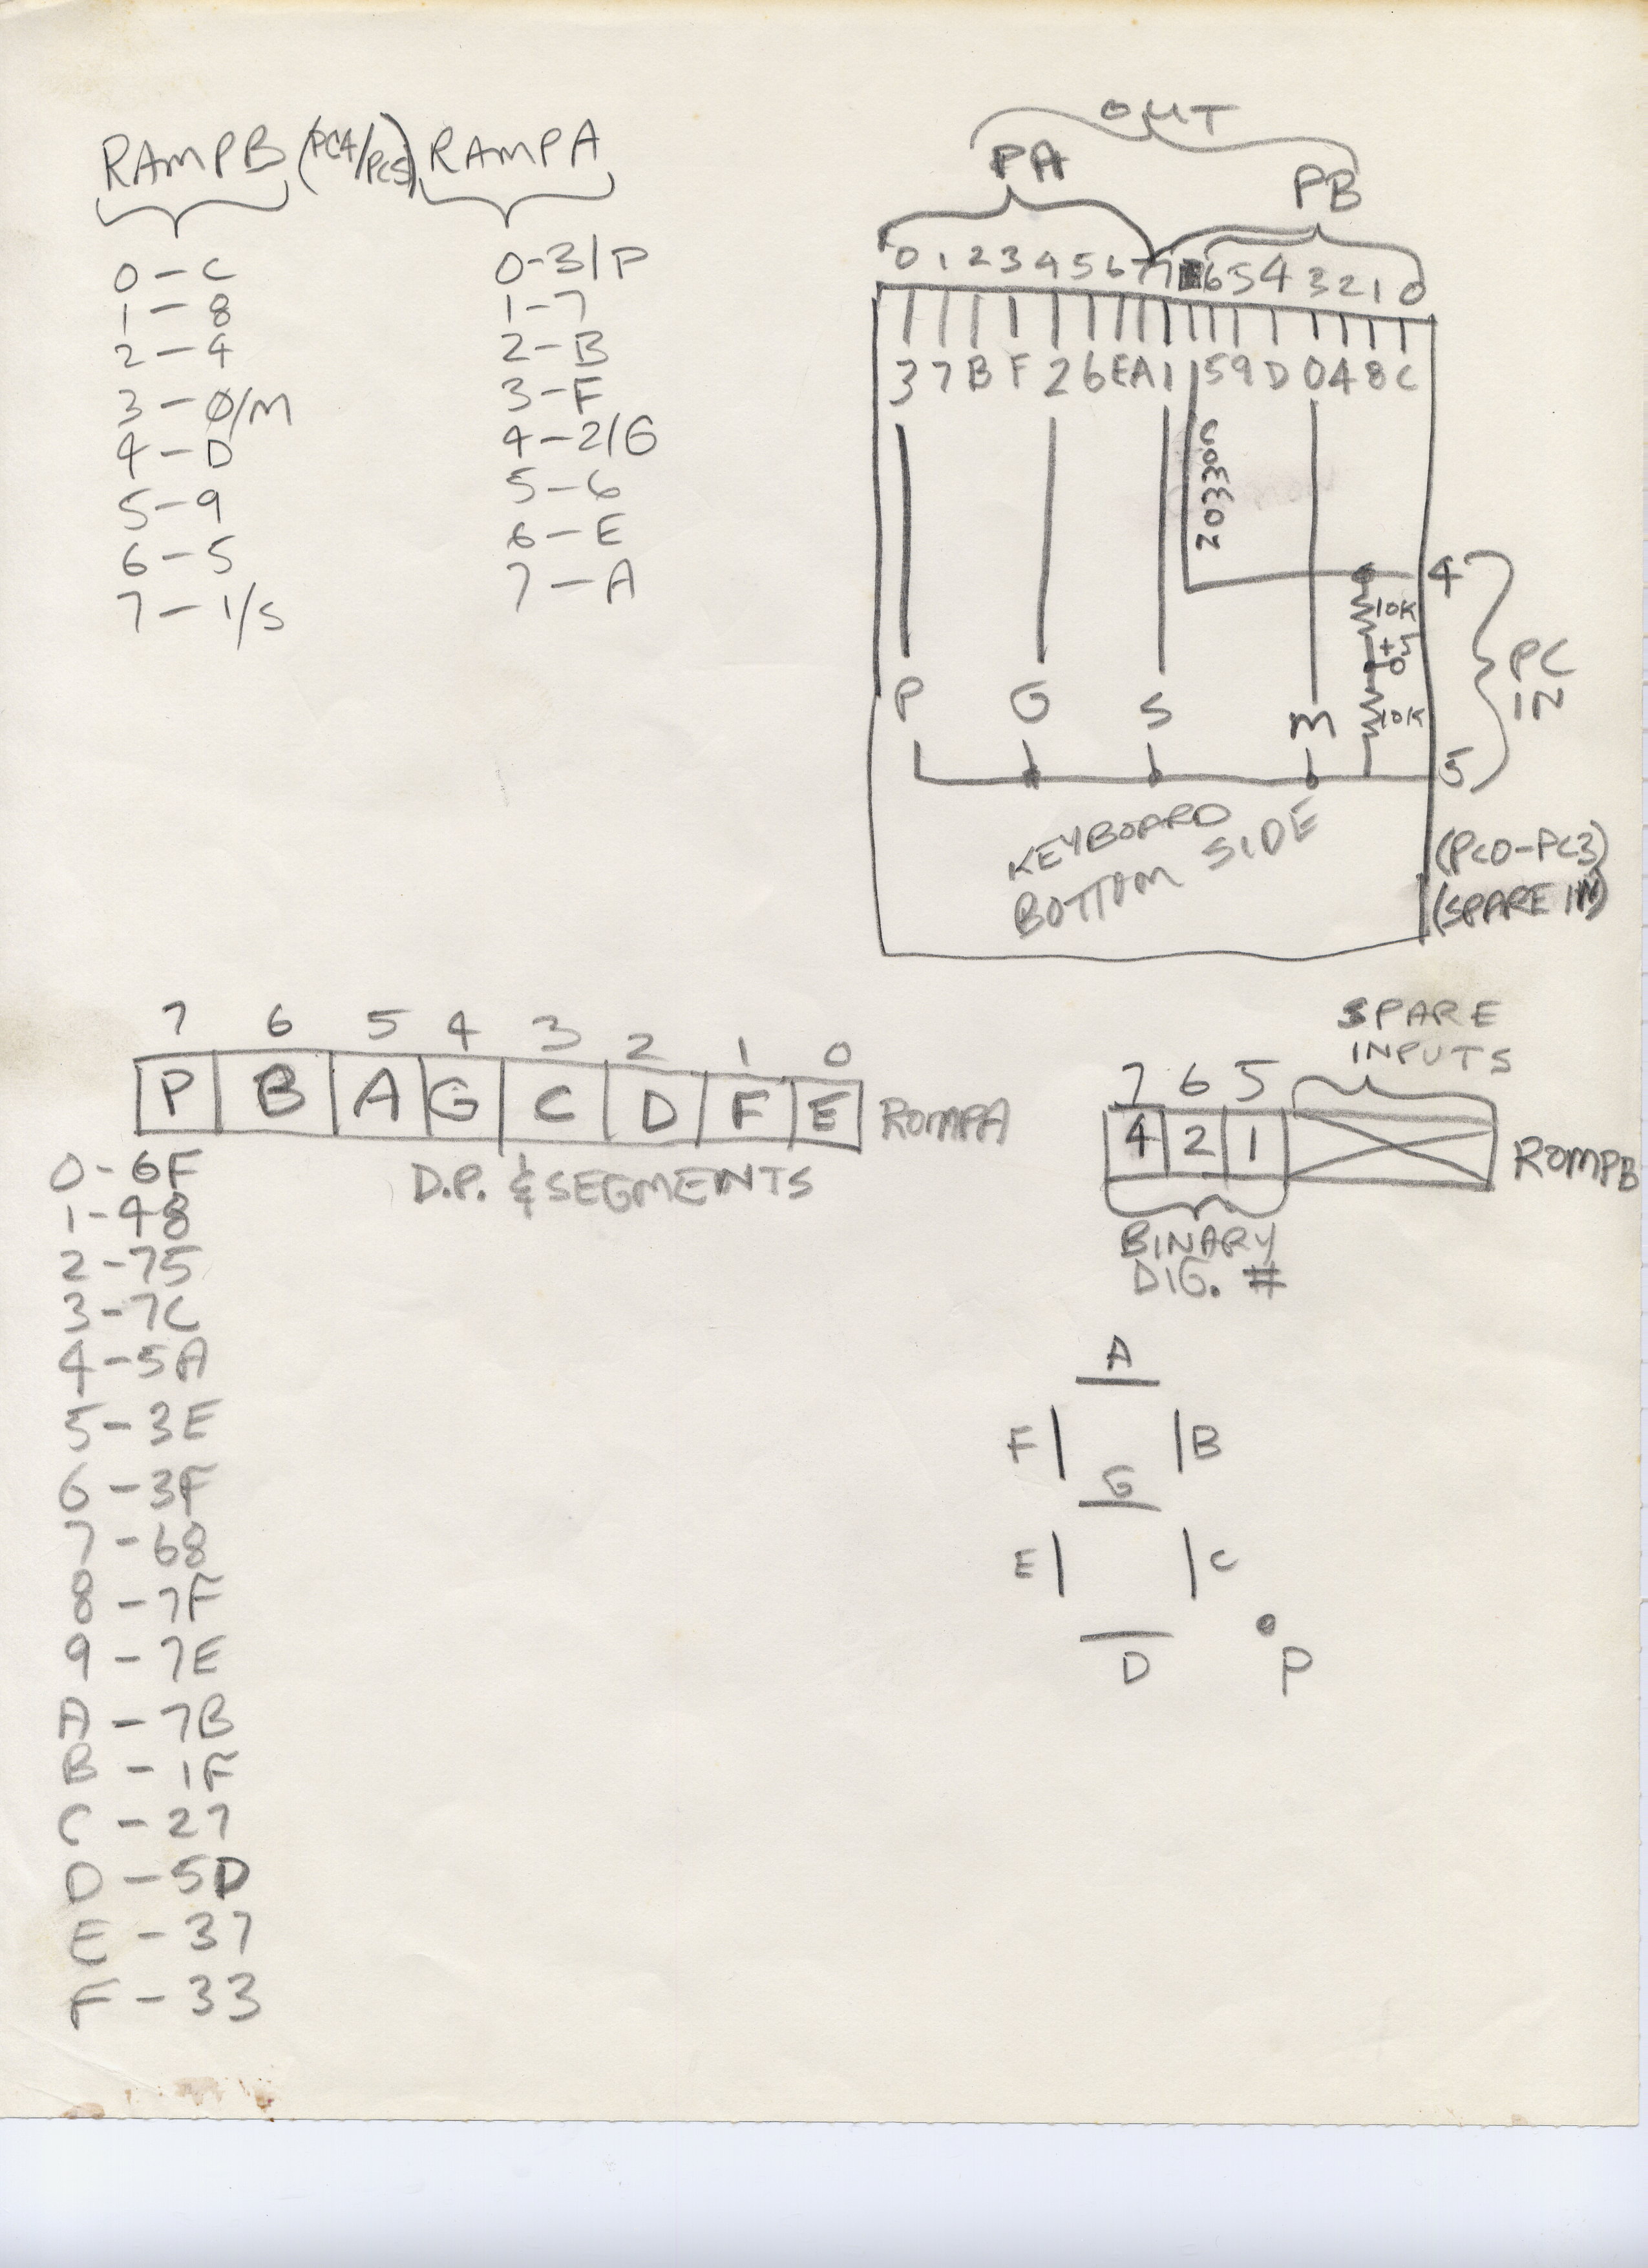 RAMPB (PC4/PC5) RAMPA
0-C
1-8
2-4
3-0/M
4-D
5-9
6-5
7-1/S
0-3/P
1-7
2-B
3-F
4-2/G
5-6
6-E
7-A
OUT
PA
PB
0 1 2 3 4 5 6 7 7 6 5 4 3 2 1 0
3 7 B F 2 6 E A 1 5 9 D 0 4 8 C
COMMON
4
10K
+5
10K
PC
IN
P G S M
5
KEYBOARD
BOTTOM SIDE
(PC0-PC3)
(SPARE IN)
7 6 5 4 3 2 1 0
P B A G C D F E ROMPA
D.P. & SEGMENTS
0-6F
1-48
2-75
3-7C
4-5A
5-3E
6-3F
7-68
8-7F
9-7E
A-7B
B-1F
C-27
D-5D
E-37
F-33
SPARE
INPUTS
7 6 5
4 2 1 ROMPB
BINARY
DIG. #
A
F B
G
E C
D P